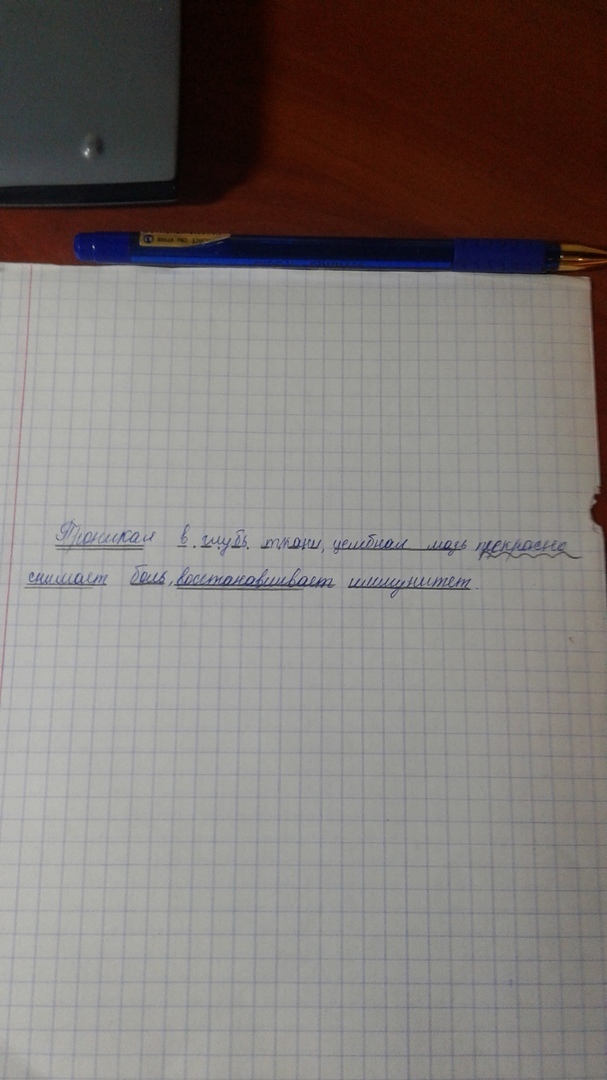 Проникая в глубь ткани, целебная мазь прекрасно
снимает боль, восстанавливает иммунитет.